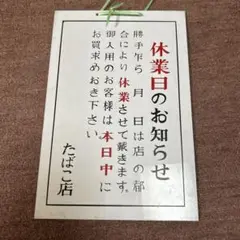 休業日のお知らせ
勝手乍ら　月　日は店の都
合により休業させて戴きます。
御入用のお客様は本日中に
お買求めおき下さい
たばこ店